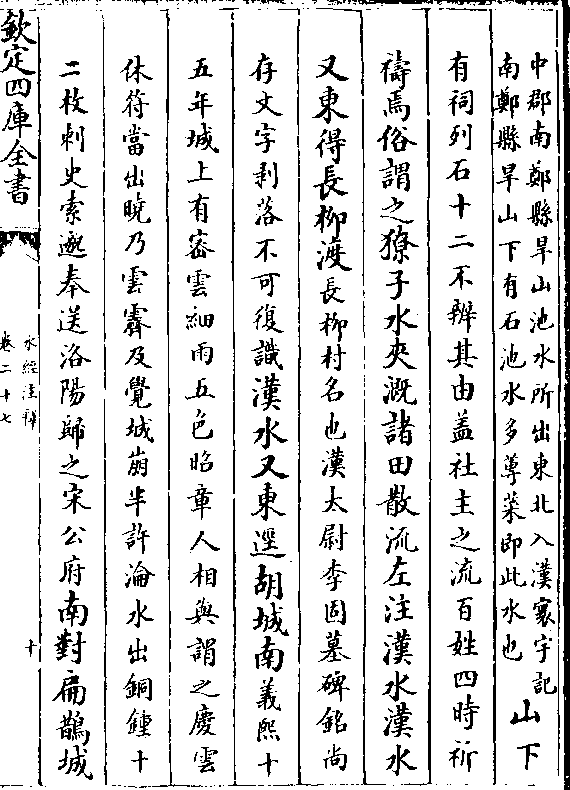 中郡南鄭縣旱山池水所出東北入漢寰宇記
南鄭縣旱山下有石池水多蓴菜即此水也山下
有祠列石十二不辨其由盖社主之流百姓四時祈
禱焉俗謂之獠子水夾溉諸田散流左注漢水漢水
又東得長柳渡長柳村名也漢太尉李固墓碑銘尚
存文字剥落不可復識漢水又東逕胡城南義熙十
五年城上有宻雲細雨五色昭章人相與謂之慶雲
休符當出曉乃雲霽及覺城崩半許淪水出銅鍾十
二枚刺史索邈奉送洛陽歸之宋公府南對扁鵲城
欽定四庫全書
水經注釋
卷二十七
十